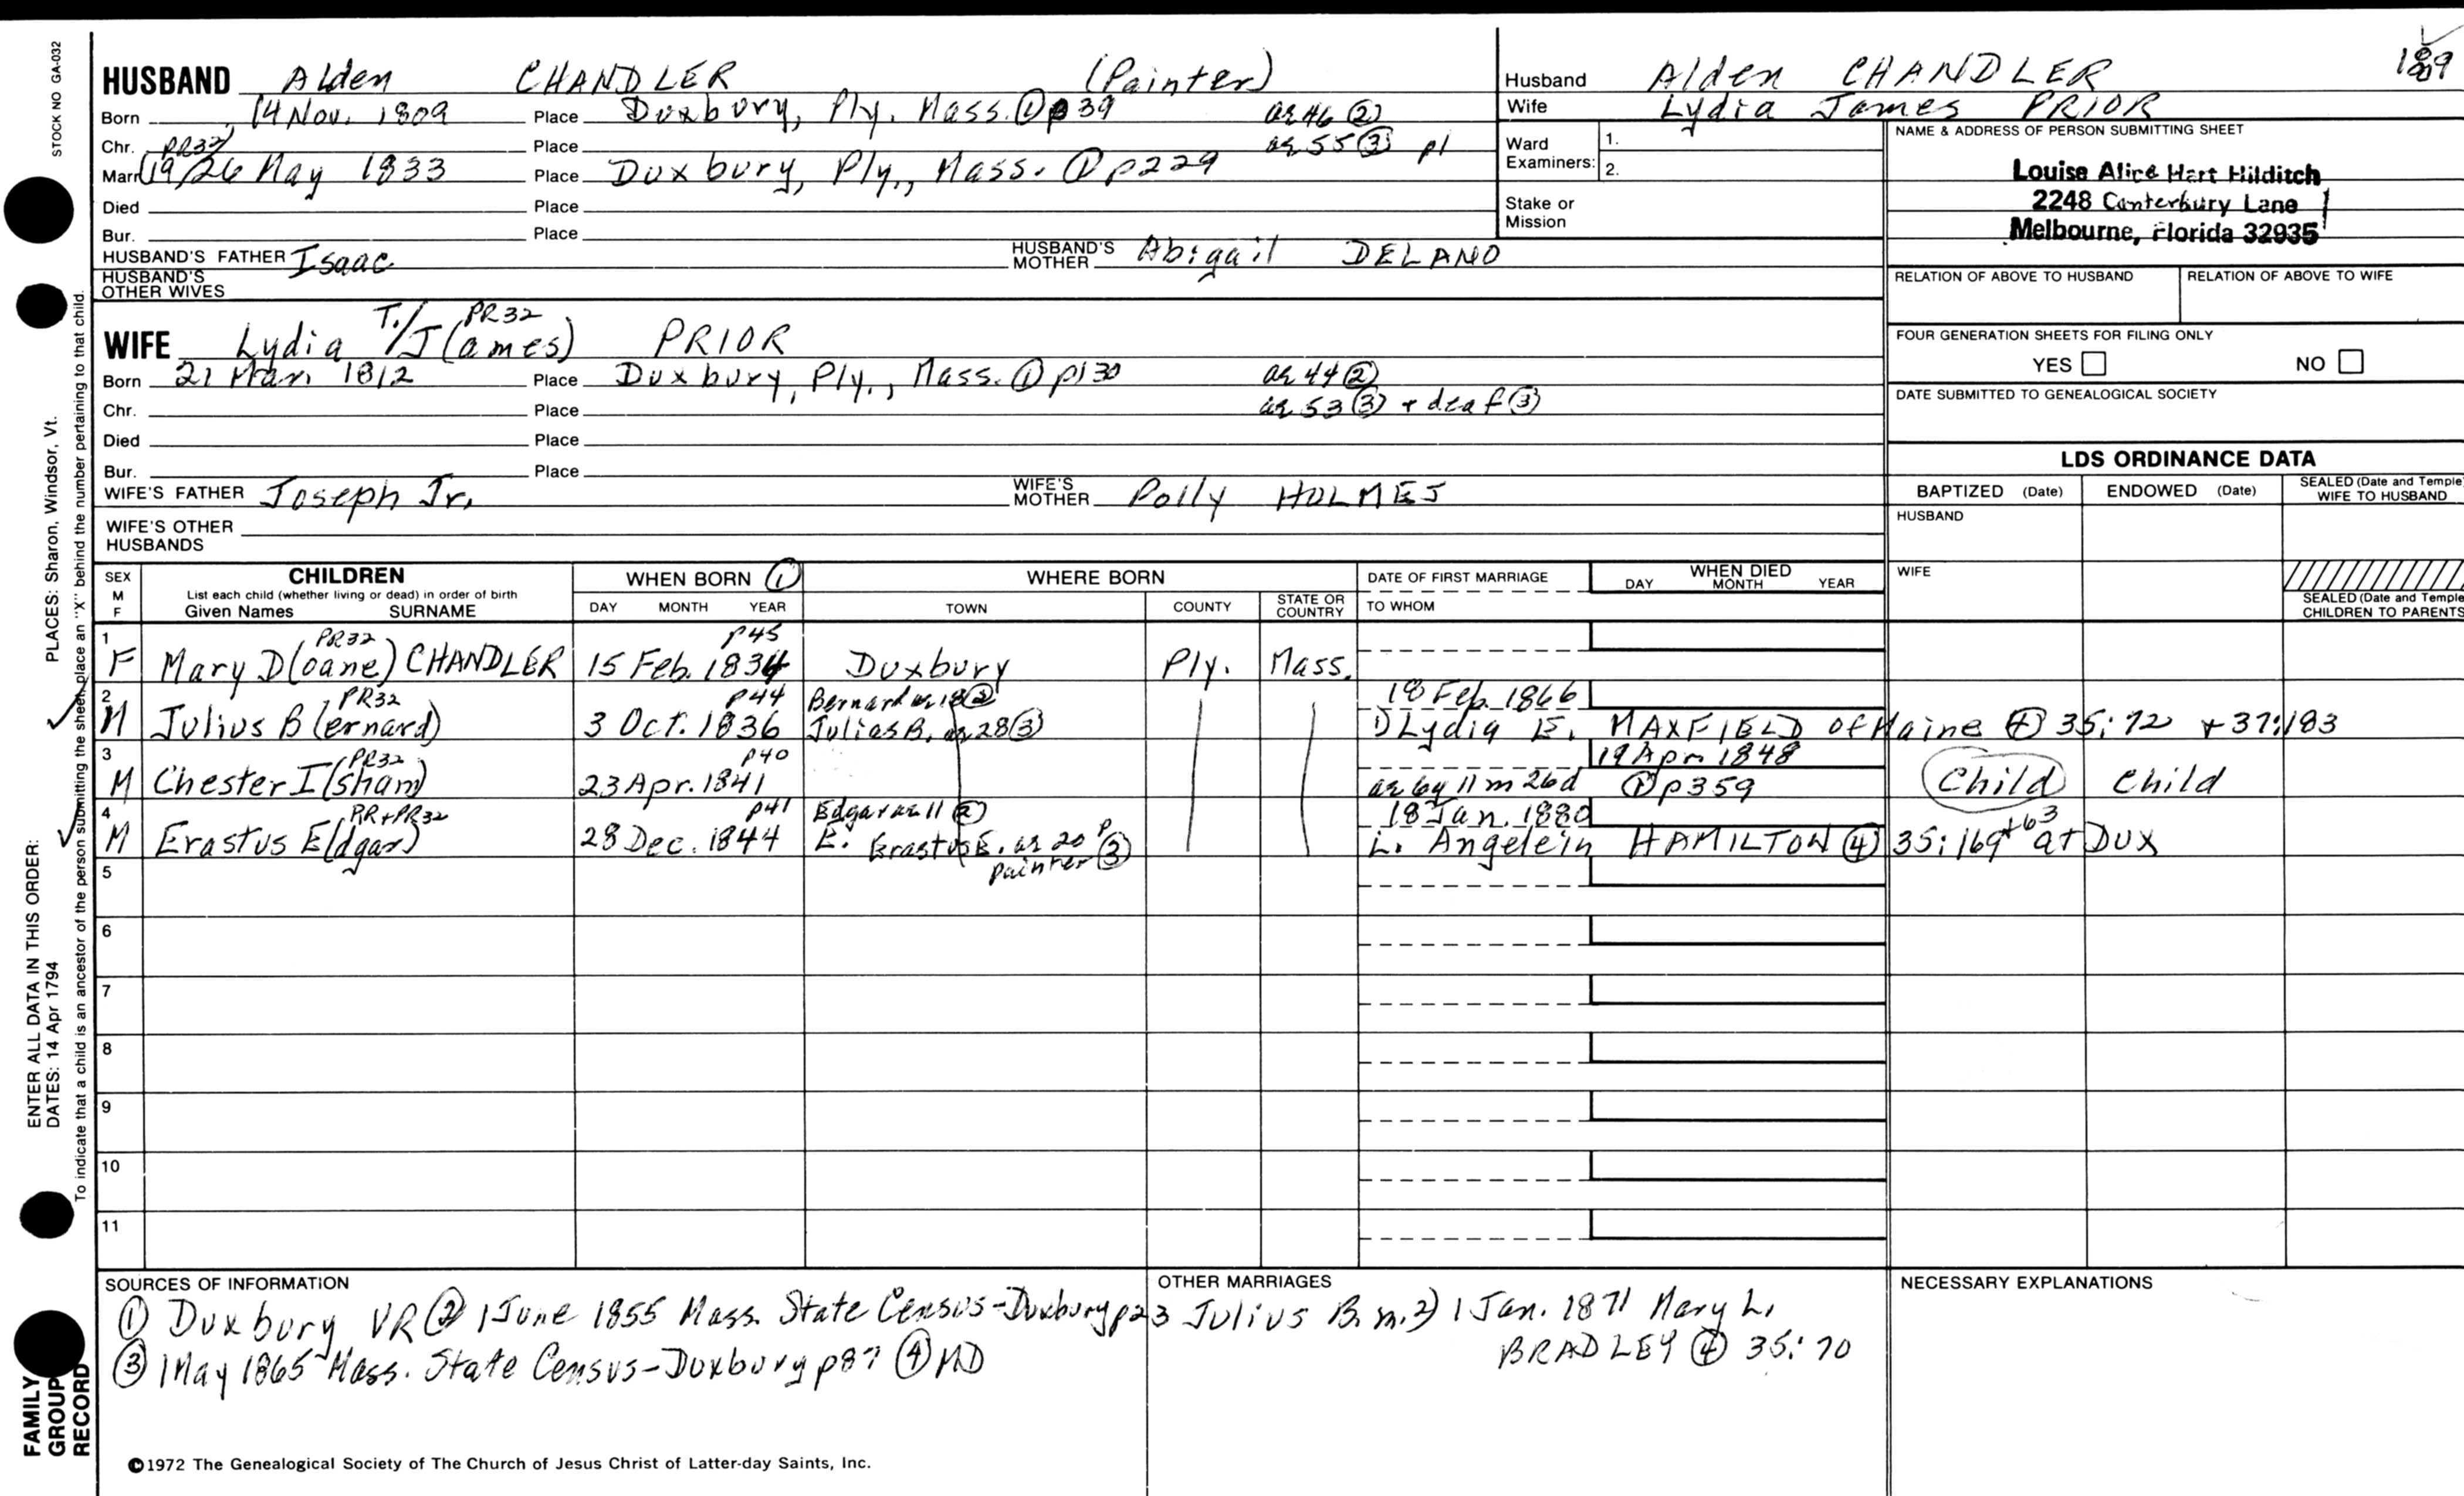 STOCK NO GA-032
HUSBAND Alden CHANDLER (Painter)
Born 14 Nov. 1809 Place Duxbury, Ply. Mass. ① p39 ae 46 ②
Chr. PR32 Place ae 55 ③ p1
Marr. 19/26 May 1833 Place Duxbury, Ply., Mass. ① p229
Died Place
Bur. Place
HUSBAND'S FATHER Isaac HUSBAND'S MOTHER Abigail DELANO
HUSBAND'S OTHER WIVES
Husband Alden CHANDLER
Wife Lydia James PRIOR
Ward Examiners: 1.
2.
Stake or Mission
NAME & ADDRESS OF PERSON SUBMITTING SHEET
Louise Alice Hart Hilditch
2248 Canterbury Lane
Melbourne, Florida 32935
RELATION OF ABOVE TO HUSBAND RELATION OF ABOVE TO WIFE
FOUR GENERATION SHEETS FOR FILING ONLY
YES NO
DATE SUBMITTED TO GENEALOGICAL SOCIETY
T./ PR32
WIFE Lydia J(ames) PRIOR
Born 21 Mar. 1812 Place Duxbury, Ply., Mass. ① p130 ae 44 ②
Chr. Place ae 53 ③ + deaf ③
Died Place
Bur. Place
WIFE'S FATHER Joseph Jr. WIFE'S MOTHER Polly HOLMES
WIFE'S OTHER HUSBANDS
LDS ORDINANCE DATA
BAPTIZED (Date) ENDOWED (Date) SEALED (Date and Temple) WIFE TO HUSBAND
HUSBAND
WIFE
SEALED (Date and Temple) CHILDREN TO PARENTS
SEX M F
CHILDREN
List each child (whether living or dead) in order of birth
Given Names SURNAME
WHEN BORN ①
DAY MONTH YEAR
WHERE BORN
TOWN COUNTY STATE OR COUNTRY
DATE OF FIRST MARRIAGE
TO WHOM
WHEN DIED
DAY MONTH YEAR
1 PR32 p45
F Mary D(oane) CHANDLER 15 Feb. 1834 Duxbury Ply. Mass.
2 PR32 p44 Bernard ae 18 ② 18 Feb. 1866
M Julius B(ernard) 3 Oct. 1836 Julius B. ae 28 ③ 1) Lydia E. MAXFIELD of Maine ④ 35:72 + 37:183
3 PR32 p40 19 Apr. 1848
M Chester I(sham) 23 Apr. 1841 ae 6y 11m 26d ① p359 Child Child
4 RR+PR32 p41 Edgar ae 11 ② 18 Jan. 1880
M Erastus E(dgar) 28 Dec. 1844 E. Erastus E. ae 20 ③ L. Angelein HAMILTON ④ 35:169 +63 at Dux
painter
5
6
7
8
9
10
11
SOURCES OF INFORMATION
① Duxbury VR ② 1 June 1855 Mass. State Census-Duxbury p23
③ 1 May 1865 Mass. State Census-Duxbury p87 ④ MD
OTHER MARRIAGES
Julius B. m. 2) 1 Jan. 1871 Mary L.
BRADLEY ④ 35:70
NECESSARY EXPLANATIONS
©1972 The Genealogical Society of The Church of Jesus Christ of Latter-day Saints, Inc.
PLACES: Sharon, Windsor, Vt.
To indicate that a child is an ancestor of the person submitting the sheet, place an "X" behind the number pertaining to that child.
ENTER ALL DATA IN THIS ORDER:
DATES: 14 Apr 1794
FAMILY
GROUP
RECORD